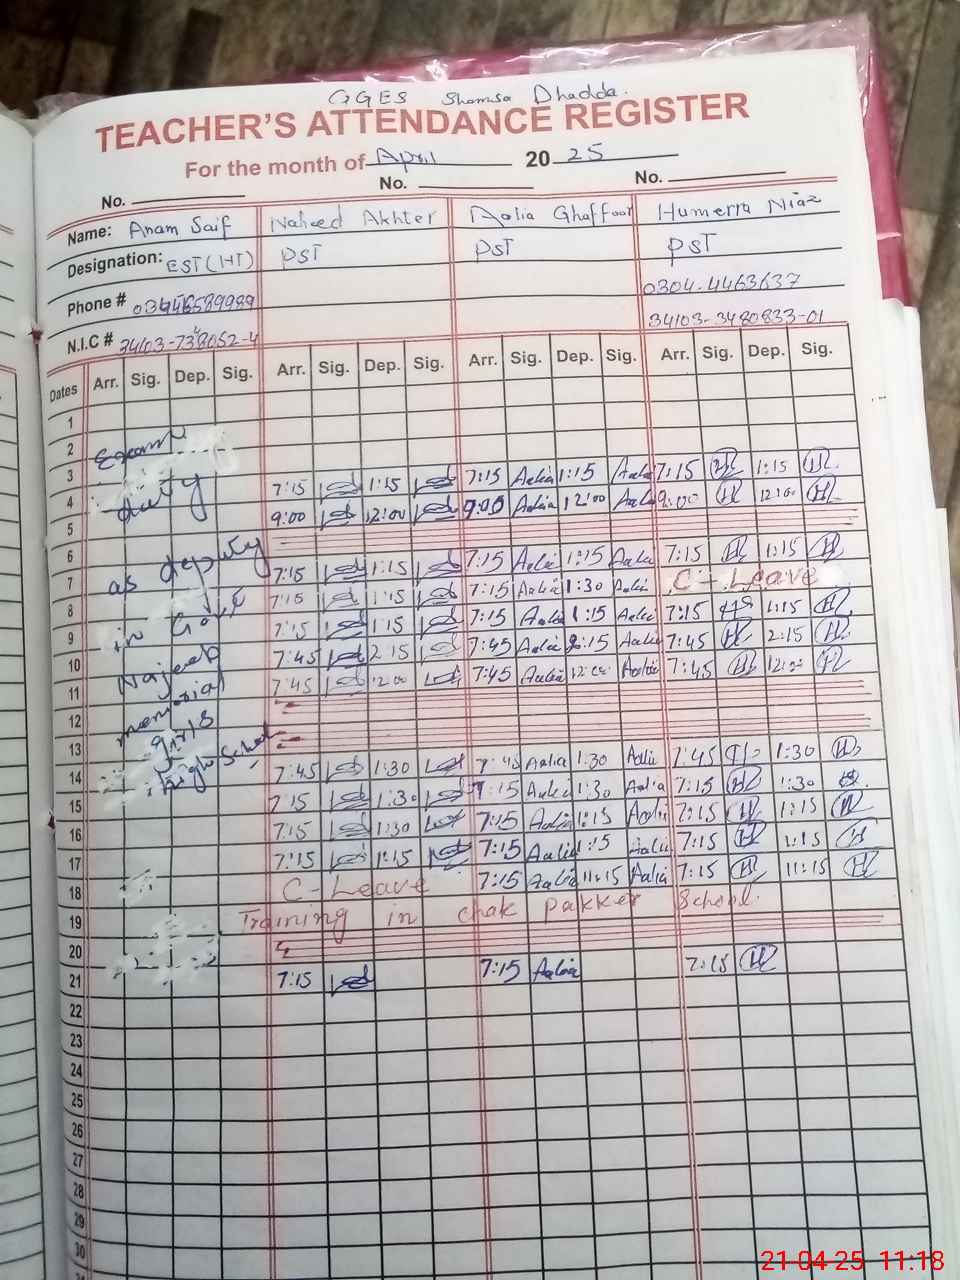 GGES Shamsa Dhadda.
TEACHER'S ATTENDANCE REGISTER
For the month of April 2025
No. No. No.
Name: Anam Saif Naheed Akhter Aalia Ghaffoor Humerra Niaz
Designation: EST(HT) PST PST PST
Phone # 0304-4463637
N.I.C # 34103-3480833-01
Dates Arr. Sig. Dep. Sig. Arr. Sig. Dep. Sig. Arr. Sig. Dep. Sig. Arr. Sig. Dep. Sig.
1
2 Exam
3 duty 7:15 1:15 7:15 Aalia 1:15 Aalia 7:15 H 1:15 H
4 9:00 12:00 9:00 Aalia 12:00 Aalia 9:00 H 12:00 H
5 as deputy
6 7:15 1:15 7:15 Aalia 1:15 Aalia 7:15 H 1:15 H
7 7:15 1:15 7:15 Aalia 1:30 Aalia C-Leave
8 in Govt 7:15 1:15 7:15 Aalia 1:15 Aalia 7:15 1:15 H
9 Najeeb 7:45 2:15 7:45 Aalia 2:15 Aalia 7:45 H 2:15 H
10 7:45 12:00 7:45 Aalia 12:00 Aalia 7:45 H 12:00 H
11 memorial
12 girls
13 High School 7:45 1:30 7:45 Aalia 1:30 Aalia 7:45 H 1:30 H
14 7:15 1:30 7:15 Aalia 1:30 Aalia 7:15 H 1:30
15 7:15 1:30 7:15 Aalia 1:15 Aalia 7:15 H 1:15 H
16 7:15 1:15 7:15 Aalia 1:15 Aalia 7:15 H 1:15 H
17 C-Leave 7:15 Aalia 11:15 Aalia 7:15 H 11:15 H
18 Training in chak pakker School.
19
20 7:15 7:15 Aalia 7:15 H
21
22
23
24
25
26
27
28
29
30
21 04 25 11:18